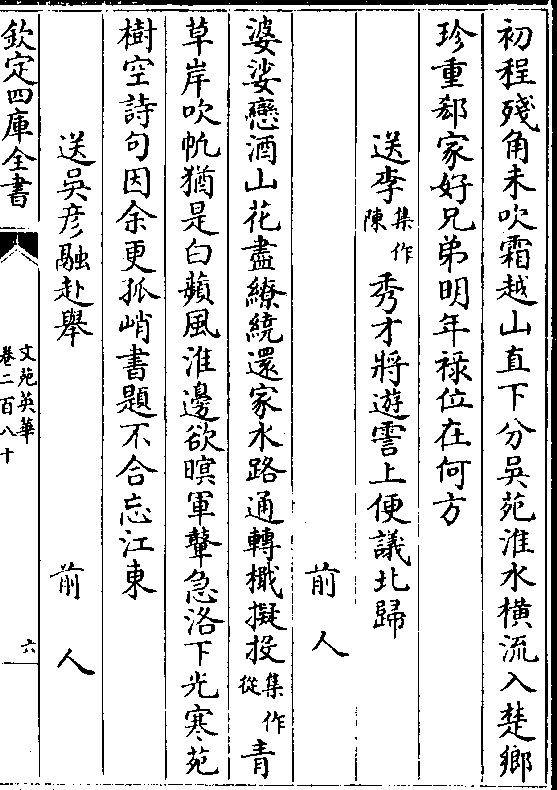 初程殘角未吹霜越山直下分吳苑淮水横流入楚鄉
珍重郄家好兄弟明年祿位在何方
送李集作陳秀才將遊霅上便議北歸
前人
婆娑戀酒山花盡繚繞還家水路通轉檝擬投集作從青
草岸吹帆猶是白蘋風淮邊欲暝軍鼙急洛下光寒苑
樹空詩句因余更孤峭書題不合忘江東
送吳彦融赴舉
前人
欽定四庫全書
文苑英華
卷二百八十
六